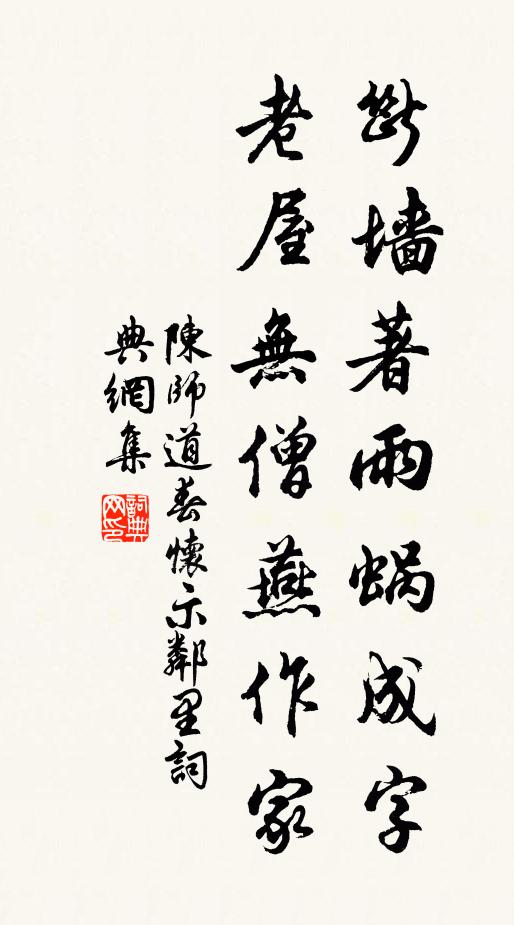 斷墻著雨蝸成字
老屋無僧燕作家
陳師道春懷示鄰里詞
典網集
詞典網印